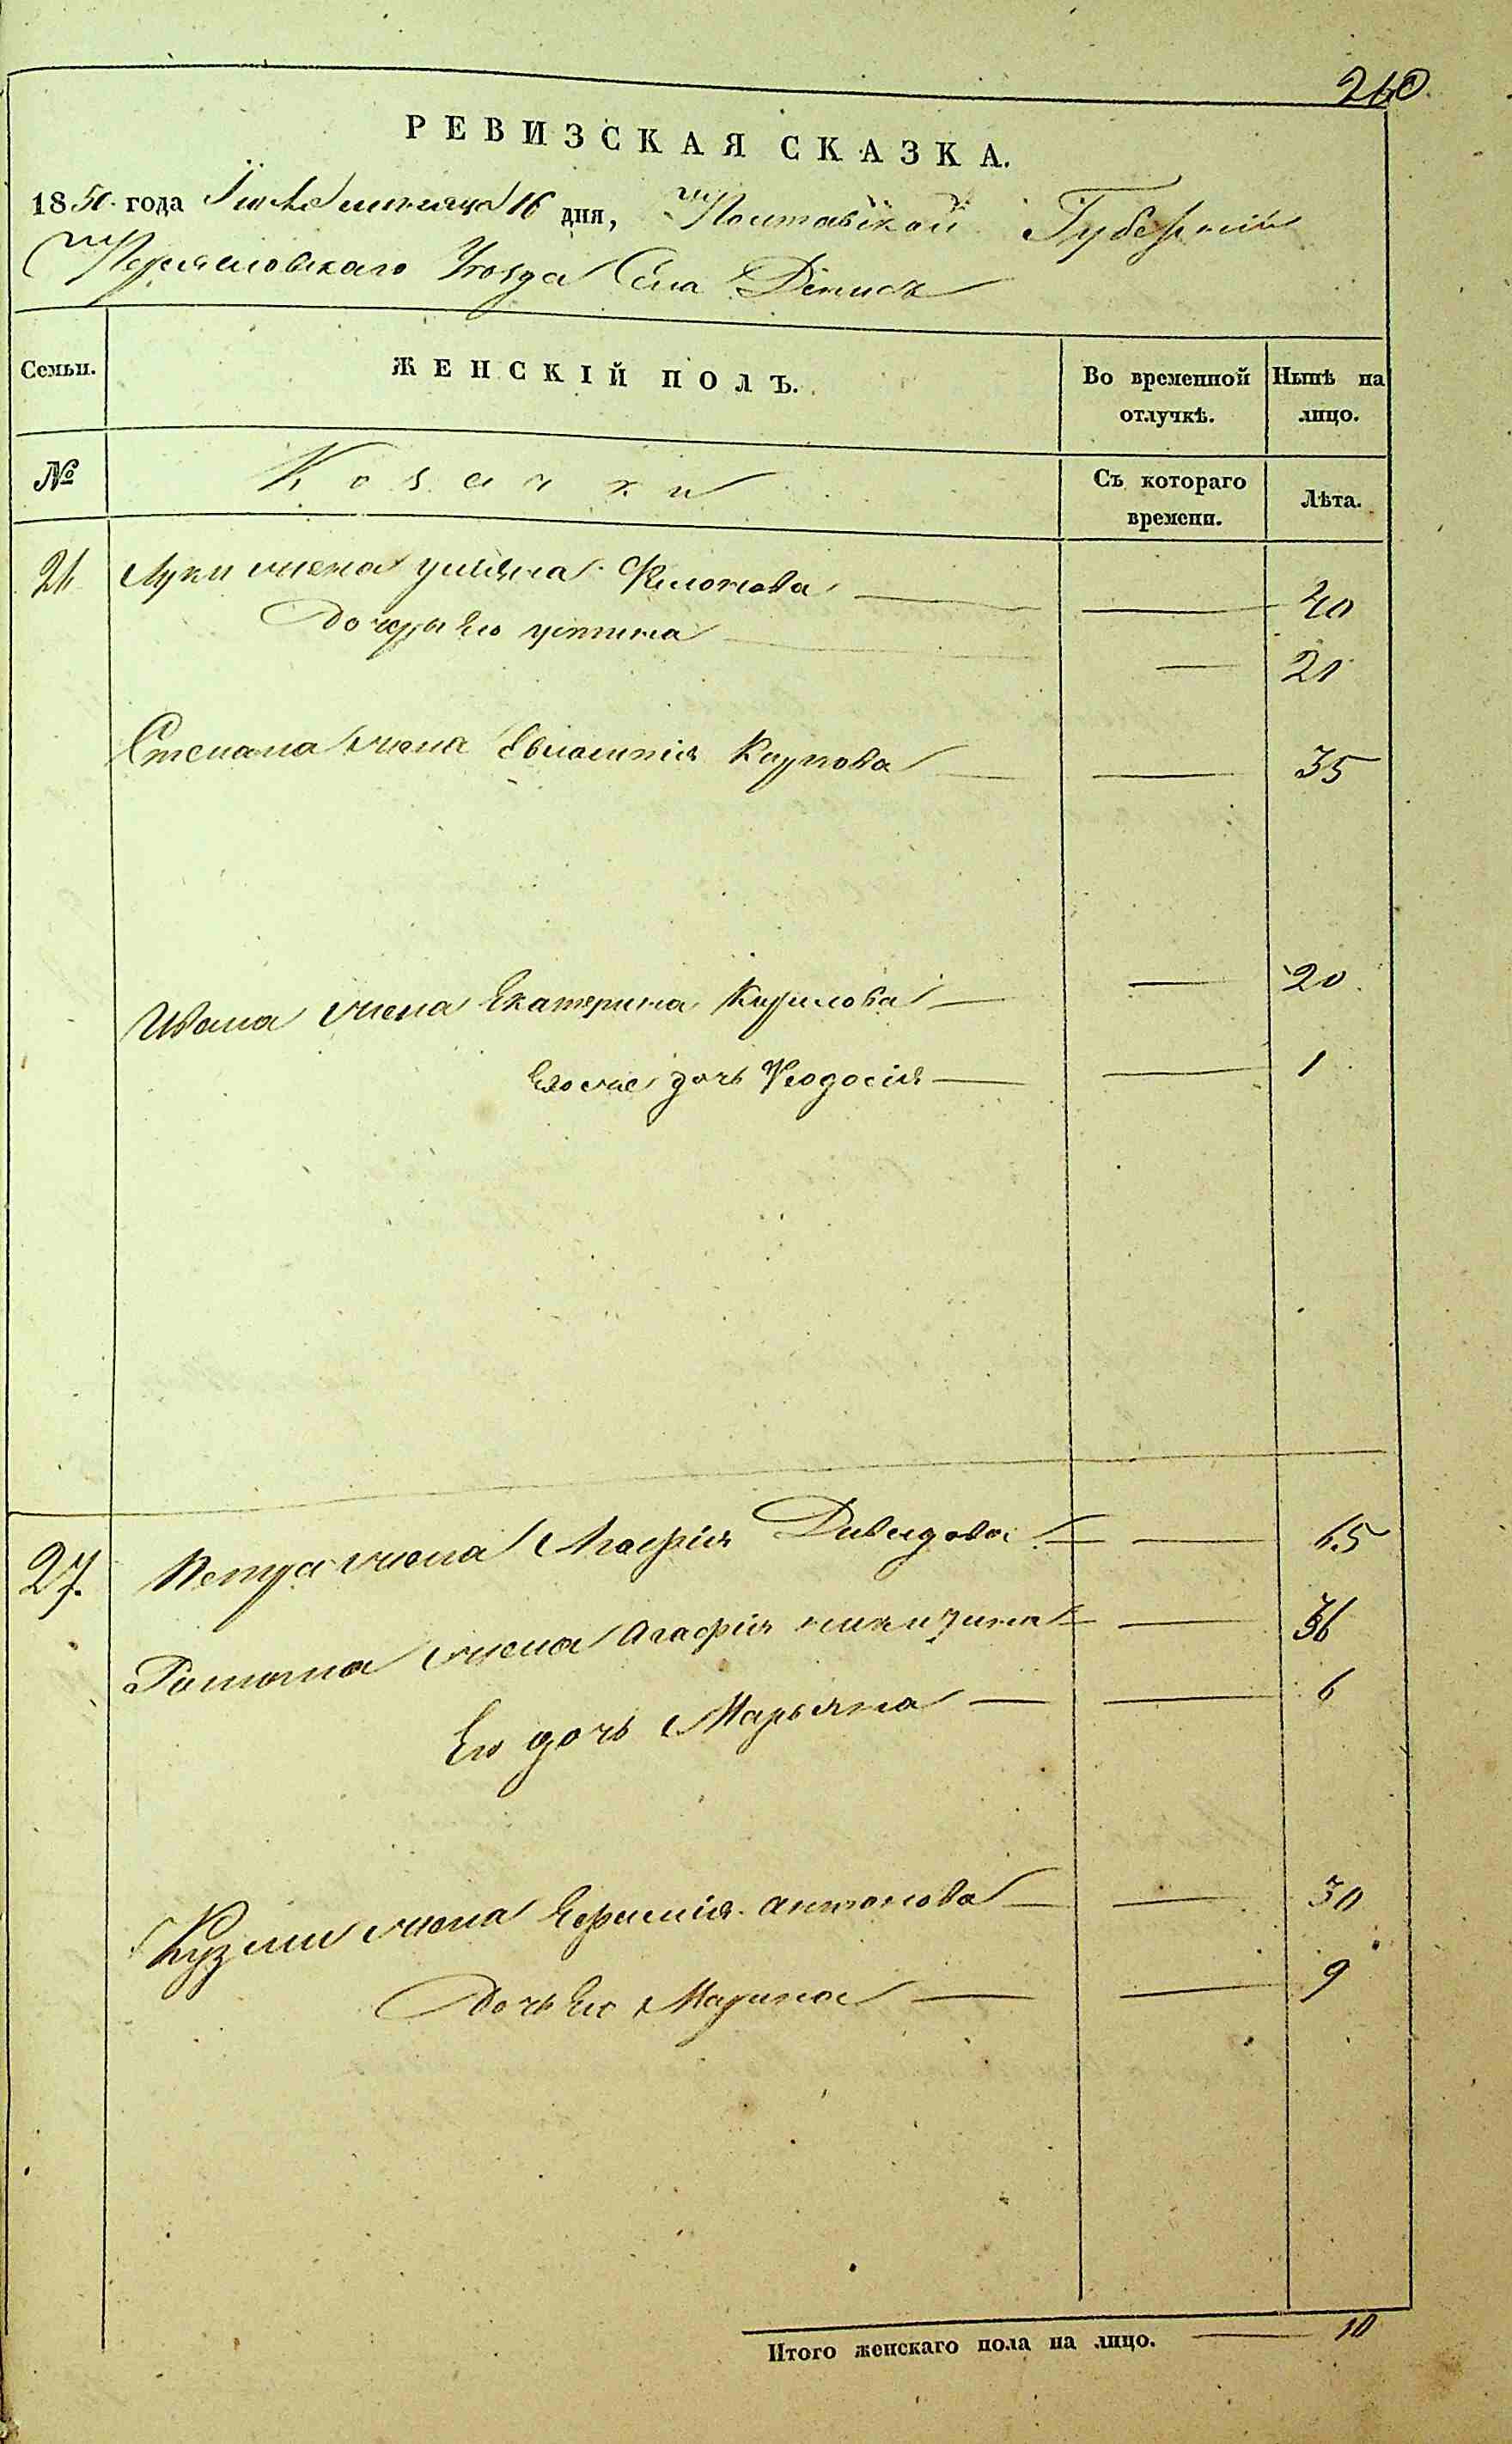 260
РЕВИЗСКАЯ СКАЗКА.
1850 года Іюля месяца 16 дня, Полтавской Губерніи
Переяславскаго Уезда Села Денисъ
Семьи. ЖЕНСКІЙ ПОЛЪ. Во временной отлучкѣ. Нынѣ на лицо.
№ Козачки Съ котораго времени. Лѣта.
Луки жена Ульяна 40
дочерь его Устина
Степана жена Евгенія Карпова 35
Ивана жена Екатерина Кирилова 20
дочь Феодосія 1
27. Петра жена Агафія Давидова 65
жена Агафія 36
Ею дочь Марьяна 6
Кузми жена Ефимія Антонова 30
Дочь Ею Марина 9
Итого женскаго пола на лицо. 10